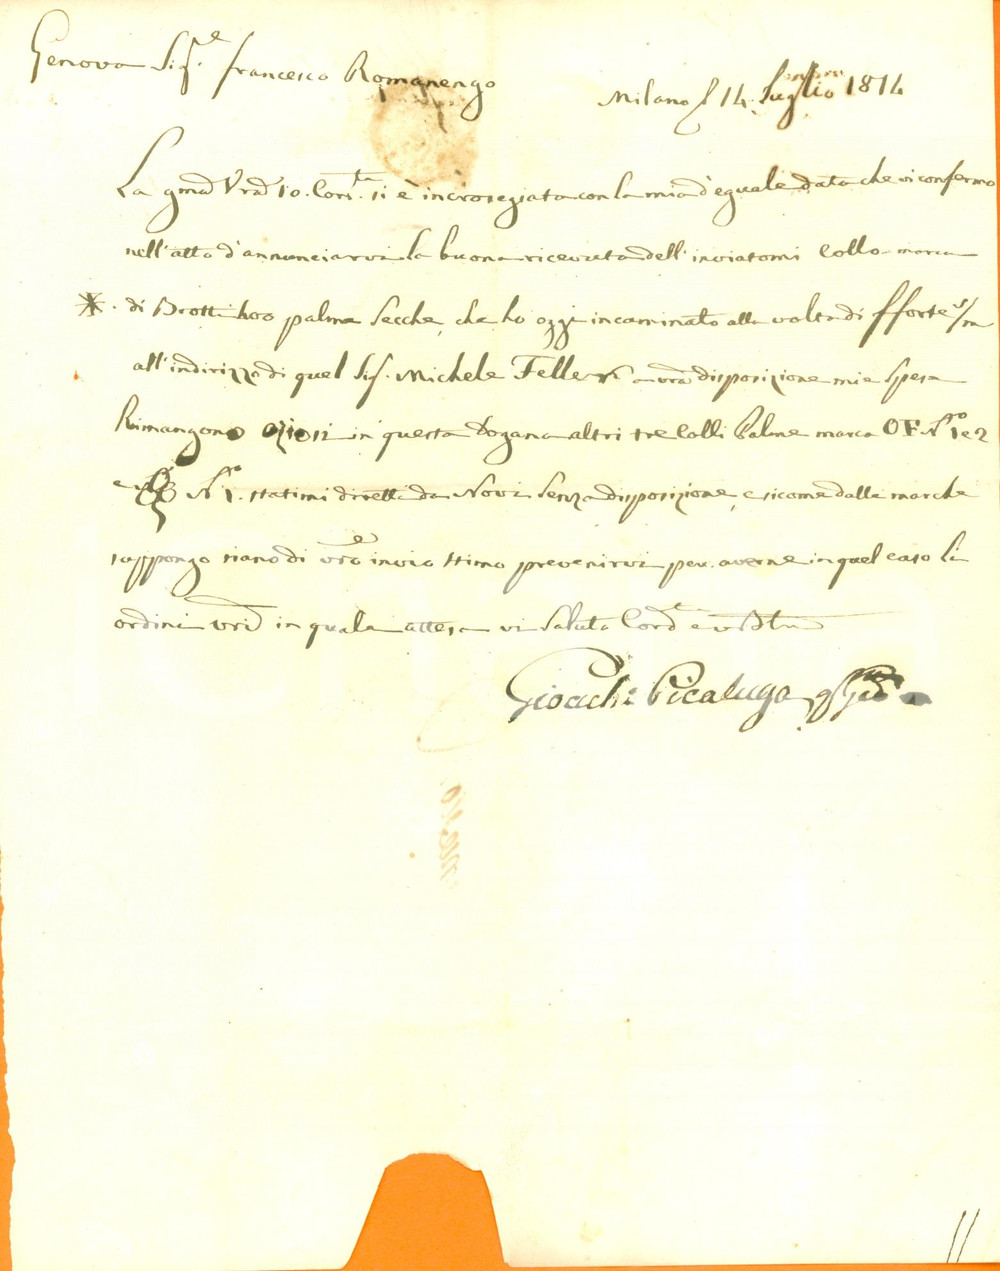 Genova Sig.e francesco Romanengo
Milano li 14. Luglio 1814
La gmã Vrã 10. Corr.te si è incrosegiata con la mia d'eguale data che vi confermo
nell'atto d'annunciarvi la buona ricevuta dell'inviatomi Collo marca
di Brotti palme Secche, che ho oggi incaminato alla volta di fforte s/m
all'indirizzo di quel Sig. Michele Feller a vrã disposizione mie Spese
Rimangono oziosi in questa Dogana altri tre Colli Palme marca OF N.ro 1 e 2
e N.o 1. statimi diretti da Novi Senza disposizione, e sicome dalle marche
suppongo siano di vro invio stimo prevenirvi per averne in quel caso li
ordini vri in quale attesa vi Saluto Cord.e
Gioachi: Picaluga